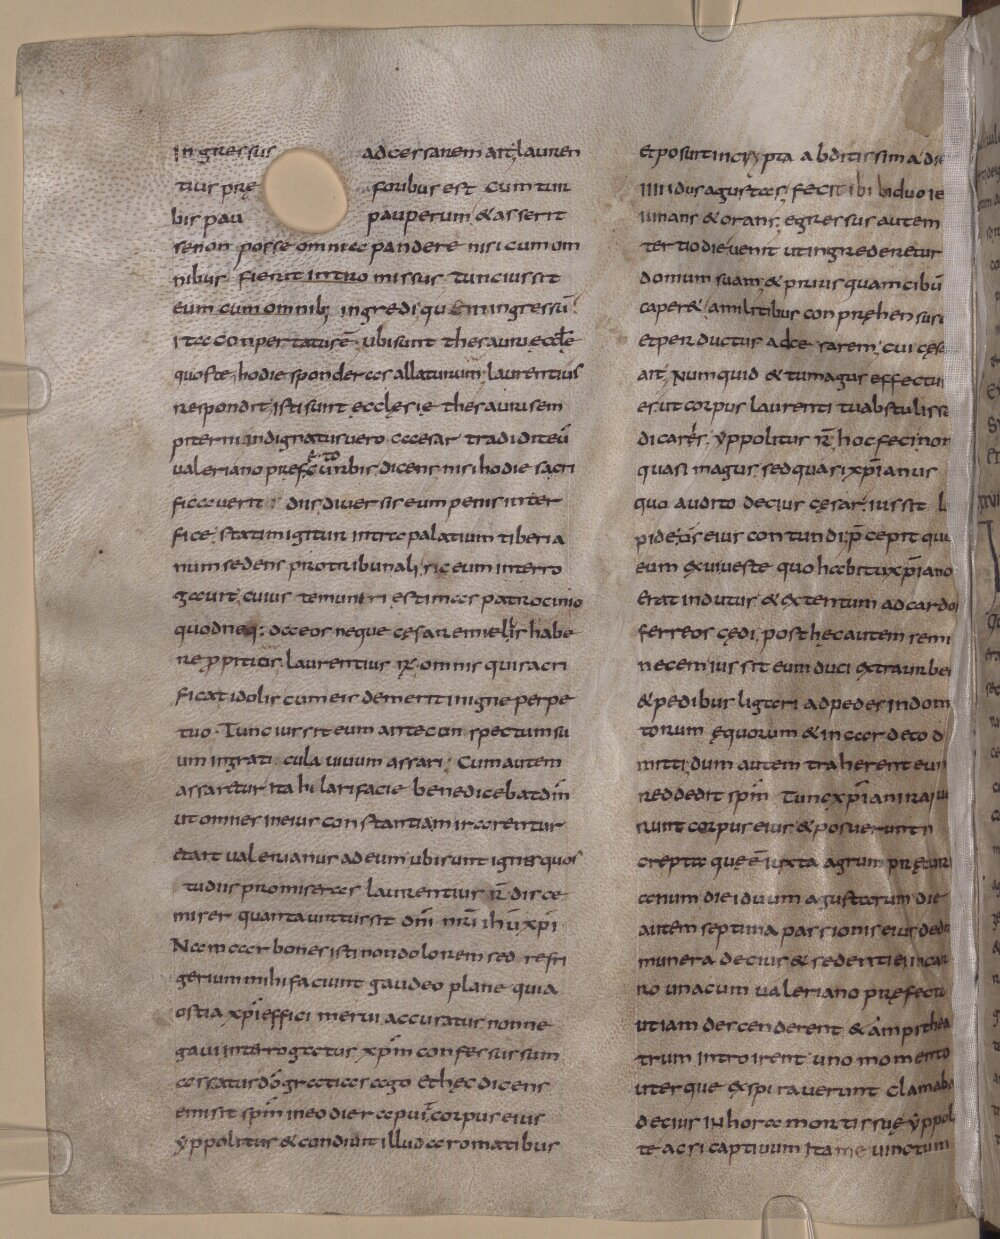 Ingressus ad cesarem ait, lauren
tius pre foribus est cum tur
bis pau pauperum & asserit
se non posse omnia pandere nisi cum om
nibus fierit intro missus tunc iussit
eum cum omnib; ingredi, qu ingressu
ita conpertatus ē ubi sunt thesauri eccle
quos te hodie sponderas allaturum, laurentius
respondit, isti sunt ecclesie thesauri sem
piterni, indignatus uero cesar tradidit eū
ualeriano prefecto urbis dicens nisi hodie sacri
ficauerit diis diuersis eum penis inter
fice, statim igitur intra palatium tiberia
num sedens pro tribunali, sic eum interro
gauit, cuius temunini estimas patrocinio
quod neq; deos neque cęsarem uelis habe
re p̱pitios, laurentius r̄ omnis qui sacri
ficat idolis cum eis demerit in igne perpe
tuo. Tunc iussit eum ante con spectum su
um in grati cula uiuum assari. Cum autem
assaretur ita hilari facie benedicebat dn̄m
ut omnes in eius constantiam ircorentur
et ait ualerianus ad eum ubi sunt ignes quos
tu diis promiseras laurentius r̄ disce
miser quanta uirtus sit dn̄i nr̄i ihū xp̄i
Nam carbones isti non dolorem sed refri
gerium mihi faciunt gaudeo plane quia
ostia xp̄i effici merui accusatus non ne
gaui interogatus xp̄m confessus sum
assatus dō gratias ago Et hęc dicens
emisit sp̄m in eo die rapuit corpus eius
ẏppolitus & condiuit illud aromatibus
Et posuit in crypta abditissima die
IIII idus agustas, fecit ibi biduo ie
iunans & orans, egressus autem
tertio die uenit ut ingrederetur
domum suam, & prius quam cibū
caper&, a militibus conprehensus
et perductus ad cesarem, cui ces
ait, Numquid & tu magus effectu
es, ut corpus laurenti tu abstuliss
dicaris, ẏppolitus r̄ hoc feci non
quasi magus, sed quasi xp̄ianus
quo audito decius cęsar, iussit l
pide os eius contundi, p̄cepit que
eum exui ueste quo habitu xp̄iano
erat indutus, & extentum ad cardo
ferreos cędi, post hęc autem semi
necem iussit eum duci extra urbe
& pedibus ligari ad pedes indom
torum ęquorum & in cardeto d
mitti, dum autem traherent eum
reddedit sp̄m Tunc xp̄iani rapue
runt corpus eius & posuerunt in
crepta que ē iuxta agrum pręturi
anum die iduum agustarum die
autem septima passionis eius dedit
munera decius & sedente in car
ro una cum ualeriano prefectu
ut iam descenderent & āmpithea
trum introirent uno momento
uterque expirauerunt clamaba
decius in hora mortis suę ẏppol
te ac si captiuum ita me uinctum